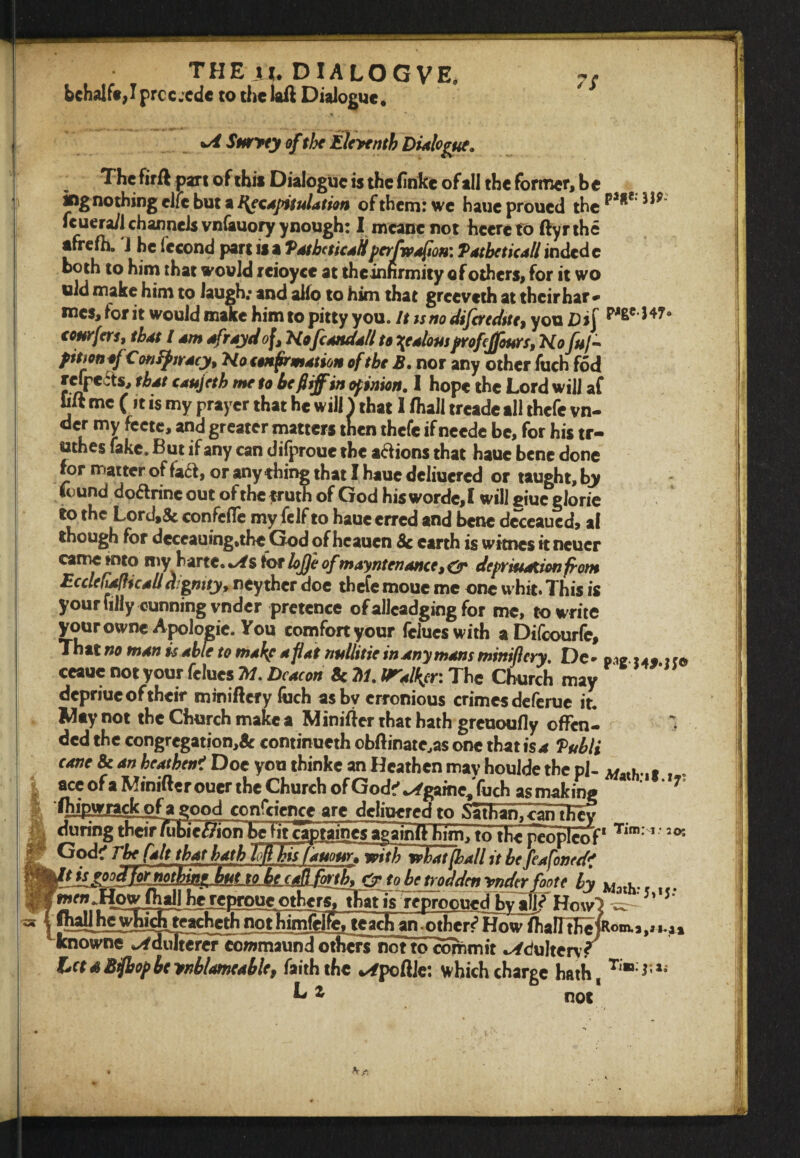 THE 11. DIALOGVE. 75
behalfe, I proceede to the last Dialogue.
A Survey of the Eleventh Dialogue.
The first part of this Dialogue is the sinke of all the former, be
ing nothing else but a Recapitulation of them: we haue proued the page: 339.
seuerall channels vnsauory ynough: I meane not heere to styr the
afresh. The second part is a Patheticall perswasion: Patheticall indede
both to him that would reioyce at the infirmity of others, for it wo
uld make him to laugh: and also to him that greeveth at their har-
mes, for it would make him to pitty you. It is no discredite, you Dis page.347.
coursers, that I am afrayd of, No scandall to zealous professours, No sus-
pition of Conspiracy, No confirmation of the B. nor any other such fōd
respects, that causeth me to be stiff in opinion. I hope the Lord will as
sist me ( it is my prayer that he will ) that I shall treade all these vn-
der my feete, and greater matters then these if neede be, for his tr-
uthes sake. But if any can disproue the actions that haue bene done
for matter of fact, or any thing that I haue deliuered or taught, by
sound doctrine out of the truth of God his worde, I will giue glorie
to the Lord, & confesse my self to haue erred and bene deceaued, al
though for deceauing, the God of heauen & earth is witnes it neuer
came into my harte. As for losse of mayntenance, & depriuation from
Ecclesiasticall dignity, neyther doe these moue me one whit. This is
your silly cunning vnder pretence of alleadging for me, to write
your owne Apologie. You comfort your selues with a Discourse,
That no man is able to make a flat nullitie in any mans ministery. De- pag.349.350
ceaue not your selues M. Deacon & M. Walker: The Church may
depriue of their ministery such as by erronious crimes deserue it.
May not the Church make a Minister that hath greuously offen-
ded the congregation, & continueth obstinate, as one that is a Publi
cane & an heathen? Doe you thinke an Heathen may houlde the pl- Math.18.17.
ace of a Minister ouer the Church of God? Againe, such as making
shipwrack of a good conscience are deliuered to Sathan, can they
during their subiection be fit captaines against him, to the people of Tim: 1. 20.
God? The salt that hath lost his sauour, with what shall it be seasoned?
It is good for nothing but to be cast forth, & to be trodden vnder foote by Math. 5,13.
men. How shall he reproue others, that is reprooued by all? How
shall he which teacheth not himselfe, teach an other? How shall the Rom.2,21.22
knowne Adulterer commaund others not to commit Adultery?
Let a Bishop be vnblameable, saith the Apostle: which charge hath Tim: 3. 2.
L 2 not